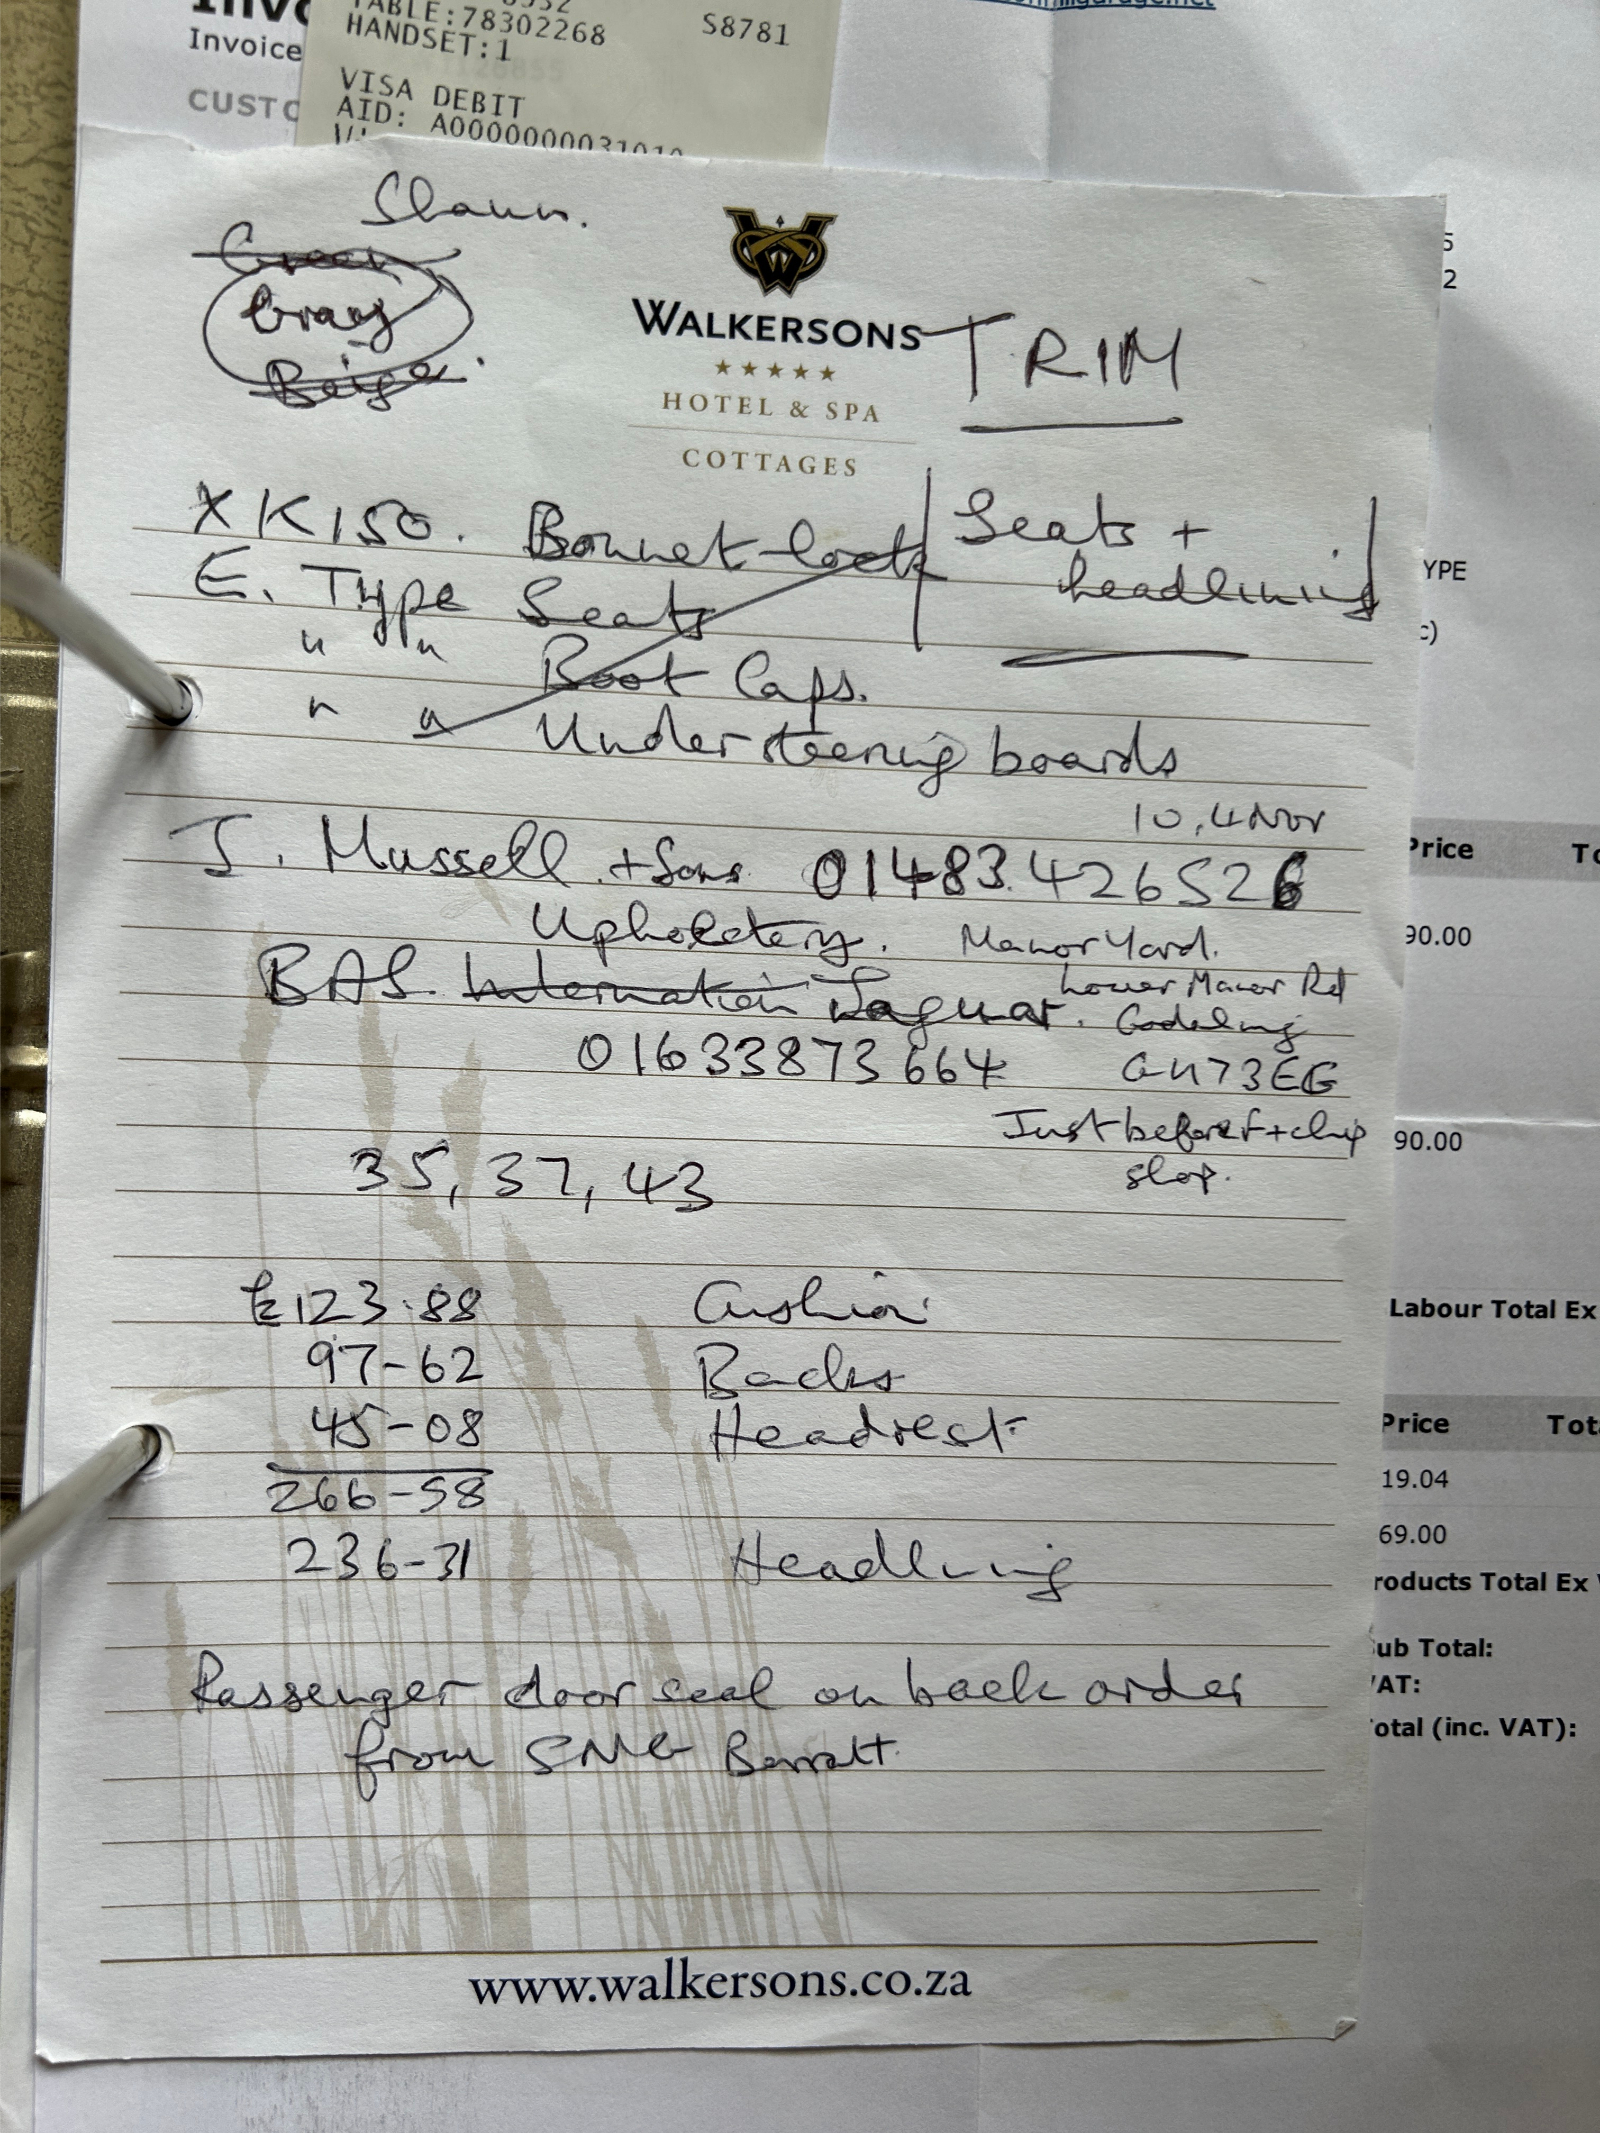 Invoice
CUSTO
TABLE:78302268 S8781
HANDSET:1
VISA DEBIT
AID: A0000000031010
Shaun.
Green
Gray
Beige.
WALKERSONS
HOTEL & SPA
COTTAGES
TRIM
XK150. Bonnet lock
Seats +
headlining
E. Type Seats
" " Boot Caps.
" " Under steering boards
10, 4 Nov
J. Mussell + Sons 01483 426526
Upholstery. Manor Yard.
BAS. Internation Jaguar. Lower Manor Rd
Godalming
01633873664 GU73EG
Just before f + chip
shop.
35, 37, 43
£123.88 Cushion
97-62 Backs
45-08 Headrest
266-58
236-31 Headlining
Passenger door seal on back order
from SNG Barratt
www.walkersons.co.za
5
2
YPE
c)
Price To
90.00
90.00
Labour Total Ex
Price Tot
19.04
69.00
roducts Total Ex
ub Total:
VAT:
otal (inc. VAT):